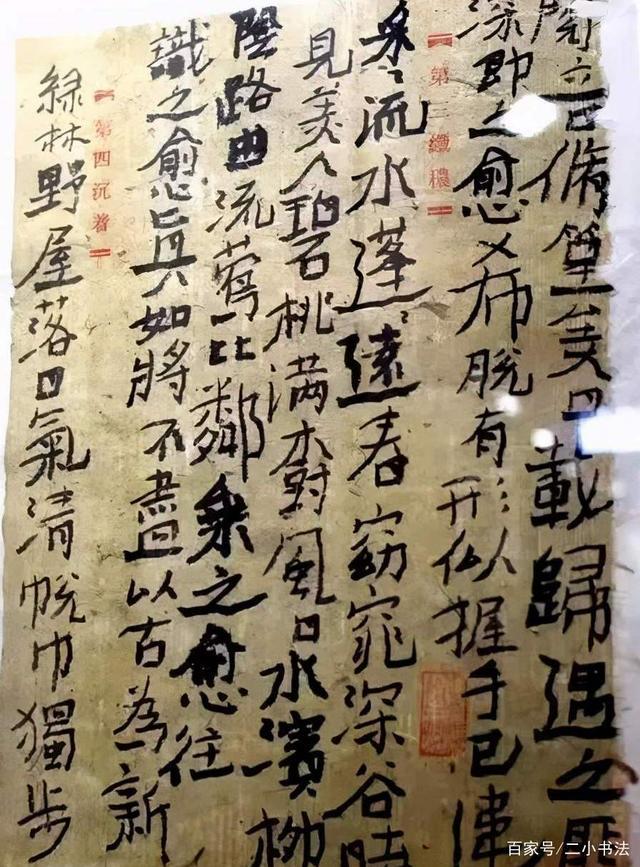 閱音脩篁美曰載歸遇之匪
深即之愈希脱有形似握手已違
第三纖穠
采〻流水蓬遠春窈窕深谷時
見美人碧桃满樹風日水濱柳
陰路曲流鶯比鄰乘之愈往
識之愈真如將不盡以古為新
第四沉着
綠林野屋落日氣清帨巾獨步
百家号/二小书法